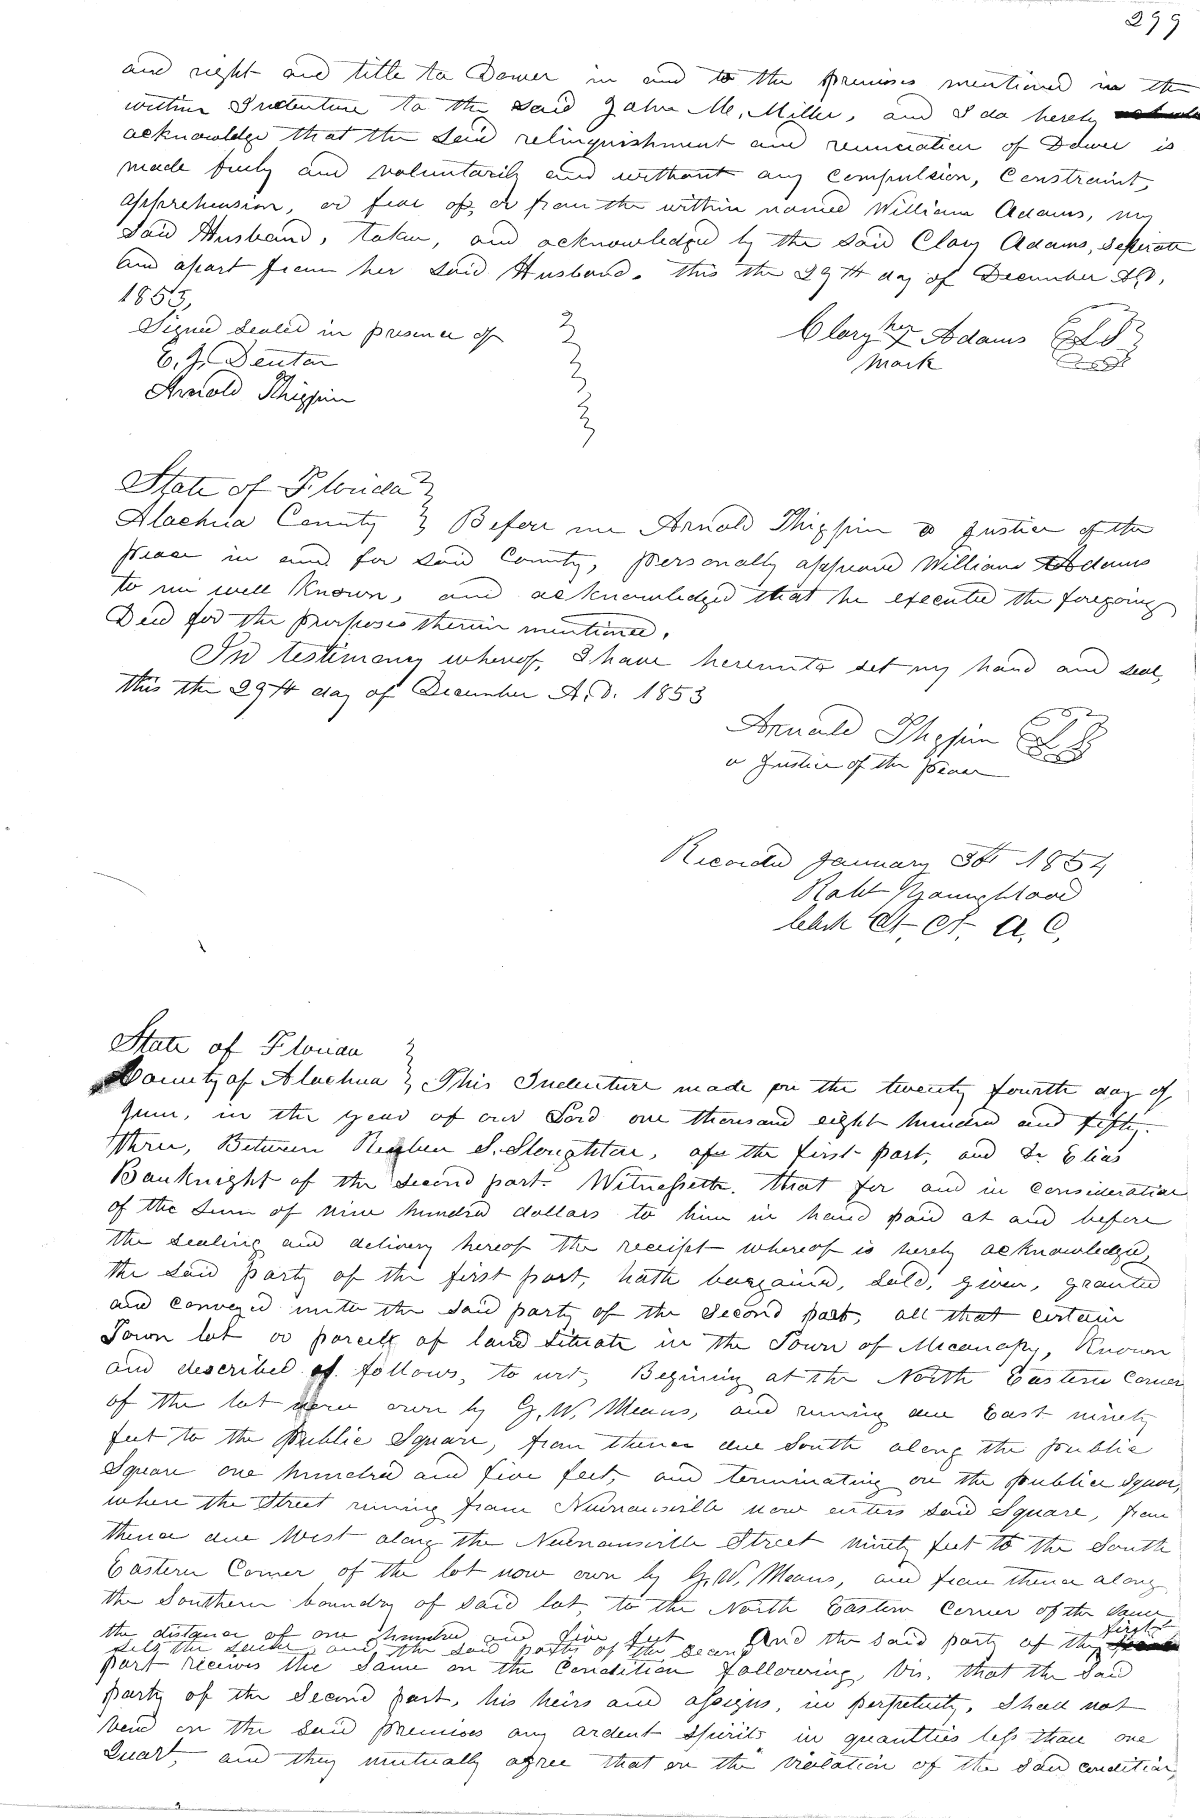 299
and right and title to Dower in and to the premises mentioned in the
within Indenture to the said John M. Miller, and I do hereby
acknowledge that the said relinquishment and renunciation of Dower is
made freely and voluntarily and without any compulsion, Constraint,
apprehension, or fear of, or from the within named William Adams, my
Said Husband, taken, and acknowledged by the said Clary Adams, seperate
and apart from her said Husband. this the 29th day of December A.D.
1853,
Signed sealed in presence of
Clary her X Adams LS
E. J. Denton
mark
Arnold Thigpin
State of Florida
Alachua County } Before me Arnold Thigpin a Justice of the
peace in and for said County, personally appeared William Adams
to me well Known, and acknowledged that he executed the foregoing
Deed for the purposes therein mentioned.
In testimony whereof, I have hereunto set my hand and seal,
this the 29th day of December A.D. 1853
Arnold Thigpin LS
a Justice of the peace
Recorded January 3d 1854
Robt Youngblood
Clerk Ct. Ct. A. C.
State of Florida
County of Alachua } This Indenture made on the twenty fourth day of
June, in the year of our Lord one thousand eight hundred and fifty-
three, Between Reuben S. Sloughter, of the first part, and Dr Elias
Bauknight of the second part. Witnesseth. that for and in consideration
of the sum of nine hundred dollars to him in hand paid at and before
the sealing and delivery hereof the receipt whereof is hereby acknowledged,
the said party of the first part, hath bargained, sold, given, granted
and conveyed unto the said party of the second part, all that certain
Town lot or parcell of land situate in the Town of Micanopy, Known
and described as follows, to wit, Begining at the North Eastern Corner
of the lot now own by G. W. Means, and runing due East ninety
feet to the Public Square, from thence due South along the public
Square one hundred and five feet, and terminating on the public square,
where the Street runing from Newnansville now enters said Square, from
thence due West along the Newnansville Street ninety feet to the South
Eastern Corner of the lot now own by G. W. Means, and from thence along
the Southern boundry of said lot, to the North Eastern Corner of the same
the distance of one hundred and five feet And the said party of the first
sells the same and the said party of the second
part receives the same on the Condition following, Vis, that the said
party of the second part, his heirs and assigns, in perpetuity, Shall not
vend on the said premises any ardent spirits in quantties less than one
Quart, and they mutually agree that on the violation of the said condition,